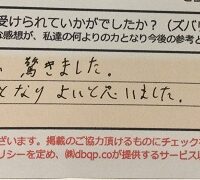 受けられていかがでしたか?(ズバ
な感想が、私達の何よりの力となり今後の参考と
驚きました。
となり よいと思いました。
ざいます。掲載のご協力頂けるものにチェック
リシーを定め、㈱dbqp.coが提供するサービス